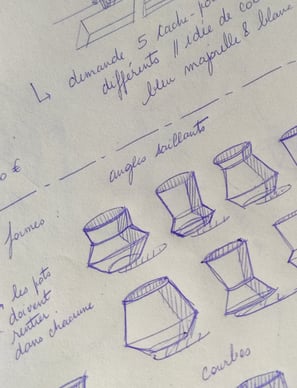 ↳ demande 5 cache-po
différents // idée de co
bleu majorelle & blanc
0 €
angles saillants
formes :
les pots
doivent
rentrer
dans chacune
courbes